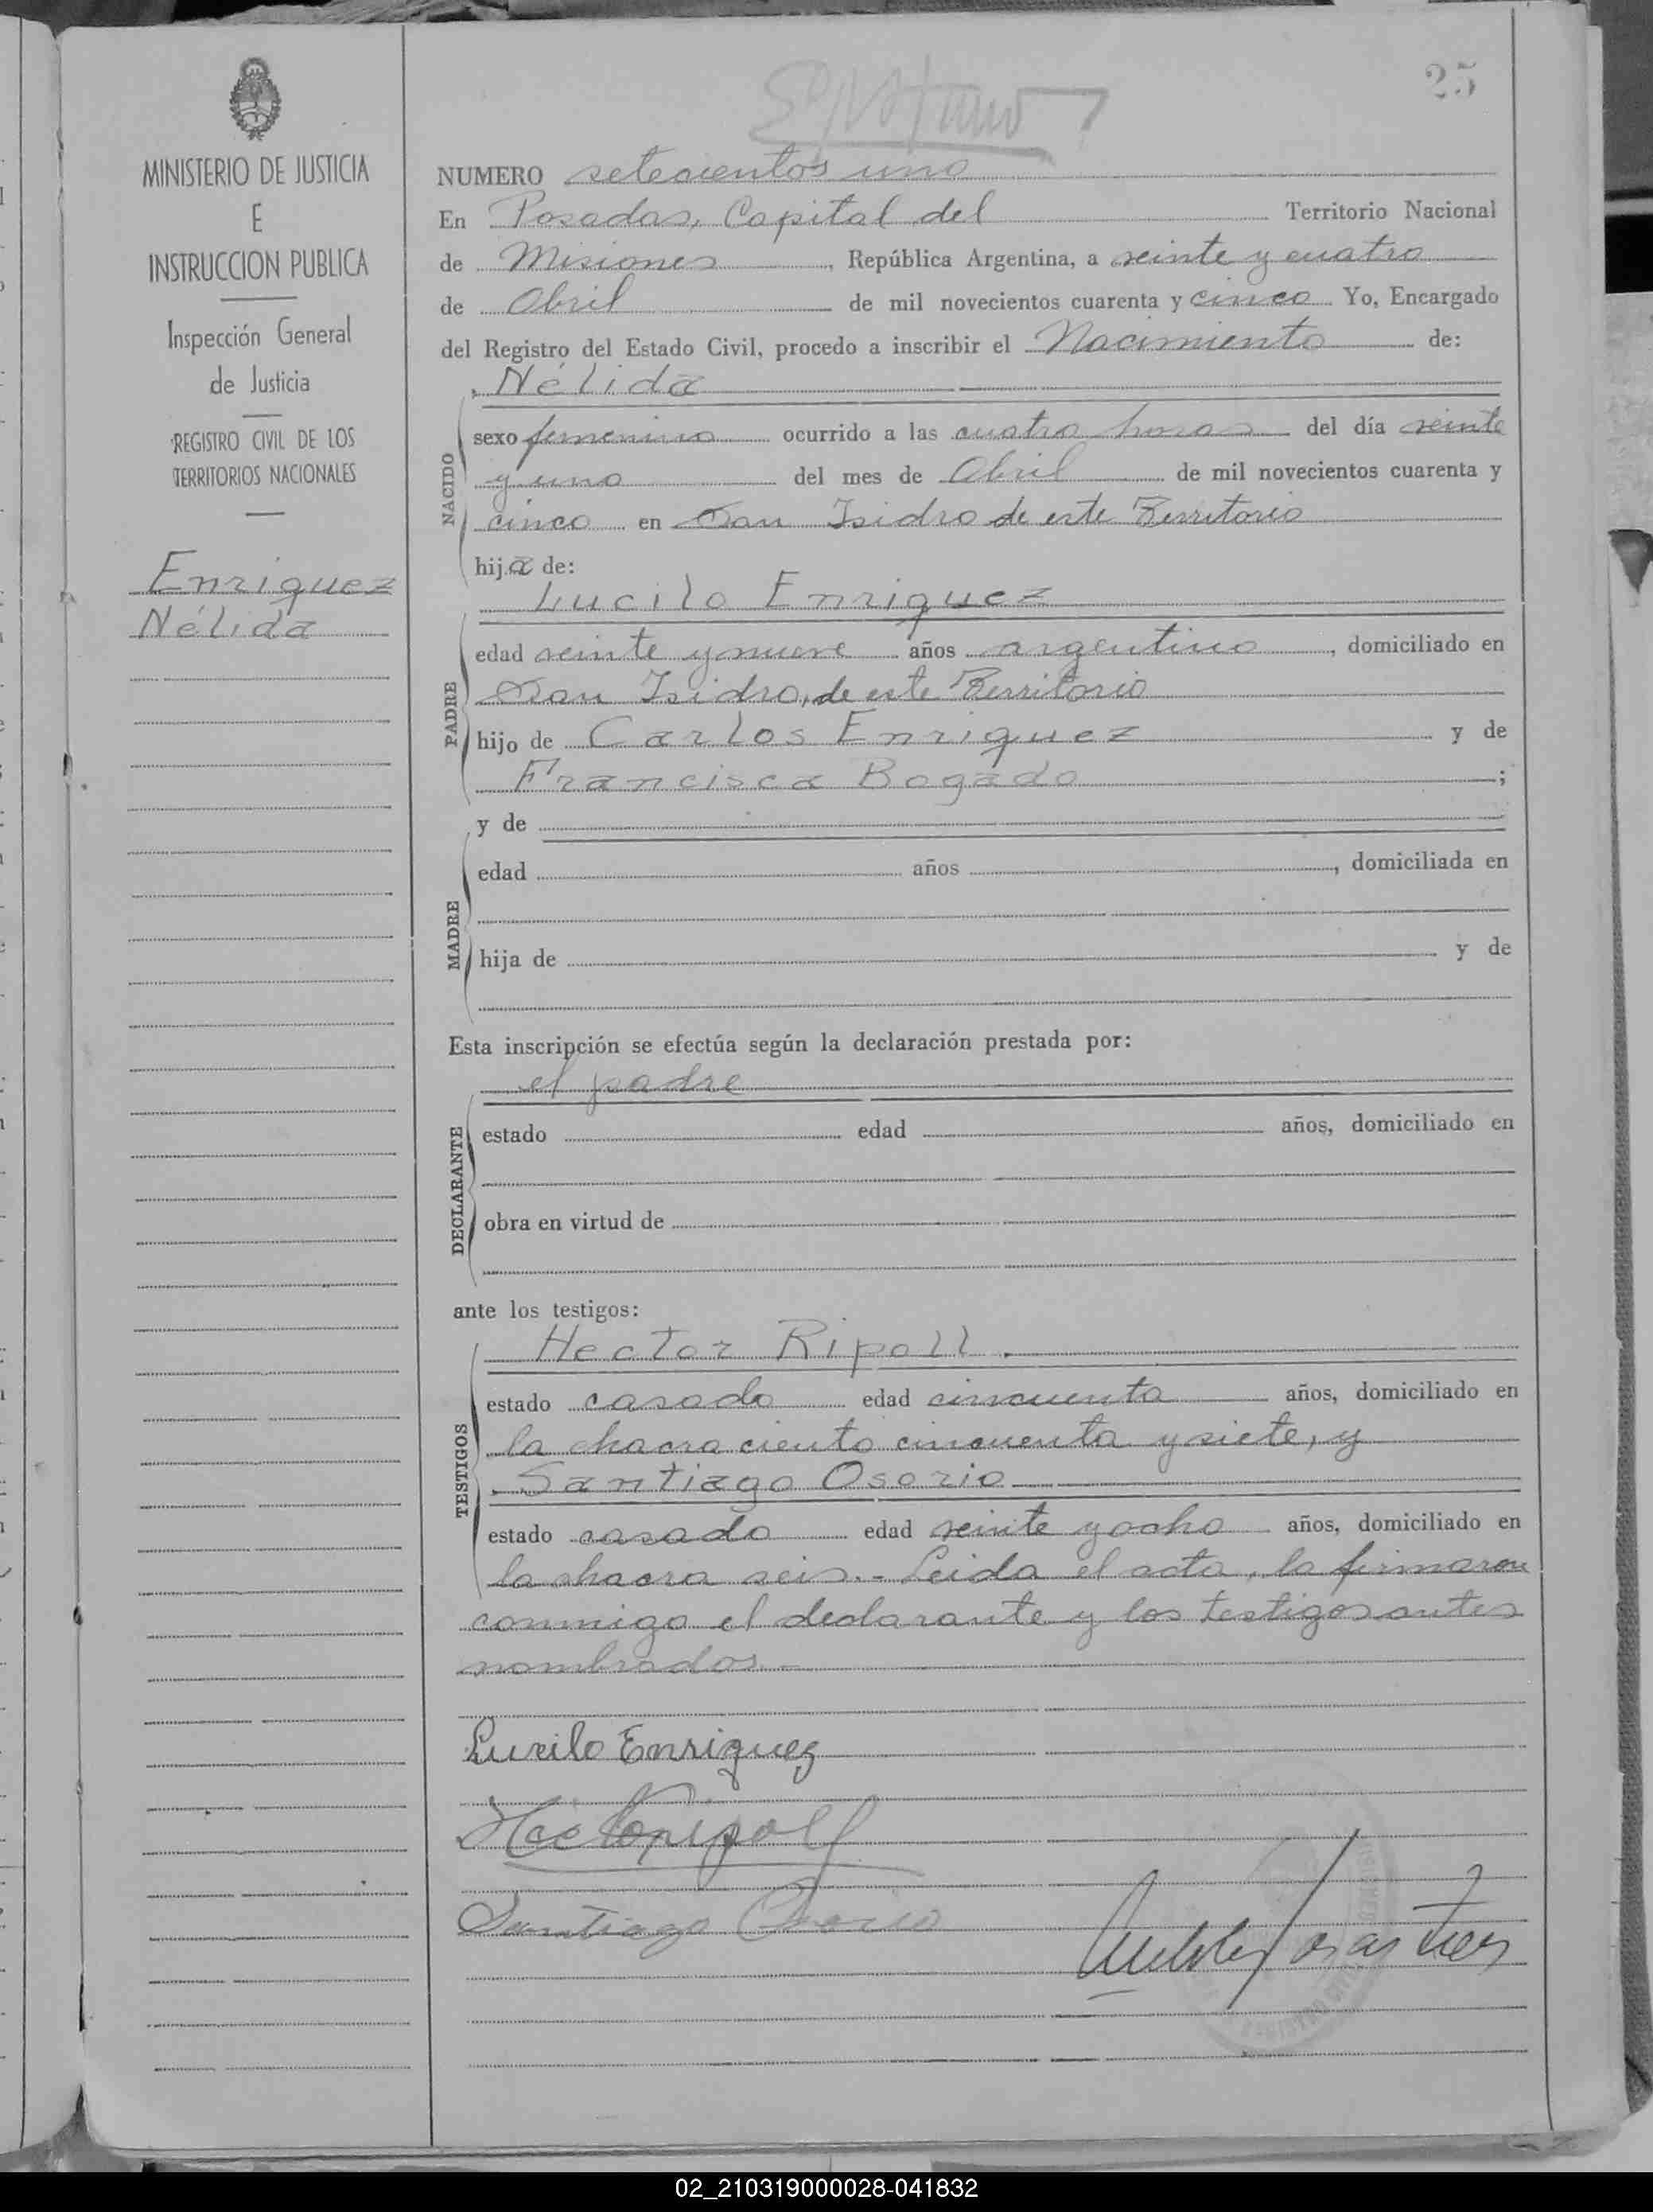 25
MINISTERIO DE JUSTICIA
E
INSTRUCCION PUBLICA
Inspección General
de Justicia
REGISTRO CIVIL DE LOS
TERRITORIOS NACIONALES
Enriquez
Nélida
NUMERO setecientos uno
En Posadas, Capital del Territorio Nacional
de Misiones, República Argentina, a veinte y cuatro
de Abril de mil novecientos cuarenta y cinco Yo, Encargado
del Registro del Estado Civil, procedo a inscribir el Nacimiento de:
Nélida
NACIDO
sexo femenino ocurrido a las cuatro horas del día veinte
y uno del mes de Abril de mil novecientos cuarenta y
cinco en San Isidro de este Territorio
hija de:
Lucilo Enriquez
PADRE
edad veinte y nueve años argentino, domiciliado en
San Isidro, de este Territorio
hijo de Carlos Enriquez y de
Francisca Bogado ;
y de
MADRE
edad años , domiciliada en
hija de y de
Esta inscripción se efectúa según la declaración prestada por:
el padre
DECLARANTE
estado edad años, domiciliado en
obra en virtud de
ante los testigos:
Hector Ripoll.
TESTIGOS
estado casado edad cincuenta años, domiciliado en
la chacra ciento cincuenta y siete, y
Santiago Osorio
estado casado edad veinte y ocho años, domiciliado en
la chacra seis.- Leida el acta, la firmaron
conmigo el declarante y los testigos antes
nombrados.-
Lucilo Enriquez
Santiago Osorio
02_210319000028-041832